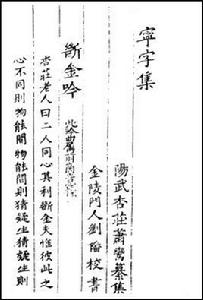 寧字集
陽武杏莊蕭鸞纂集
金陵門人劉校書
斷金吟
杏莊老人曰二人同心其利斷金夫惟彼此之
心不同則物能間物能間則猜疑生猜疑生則